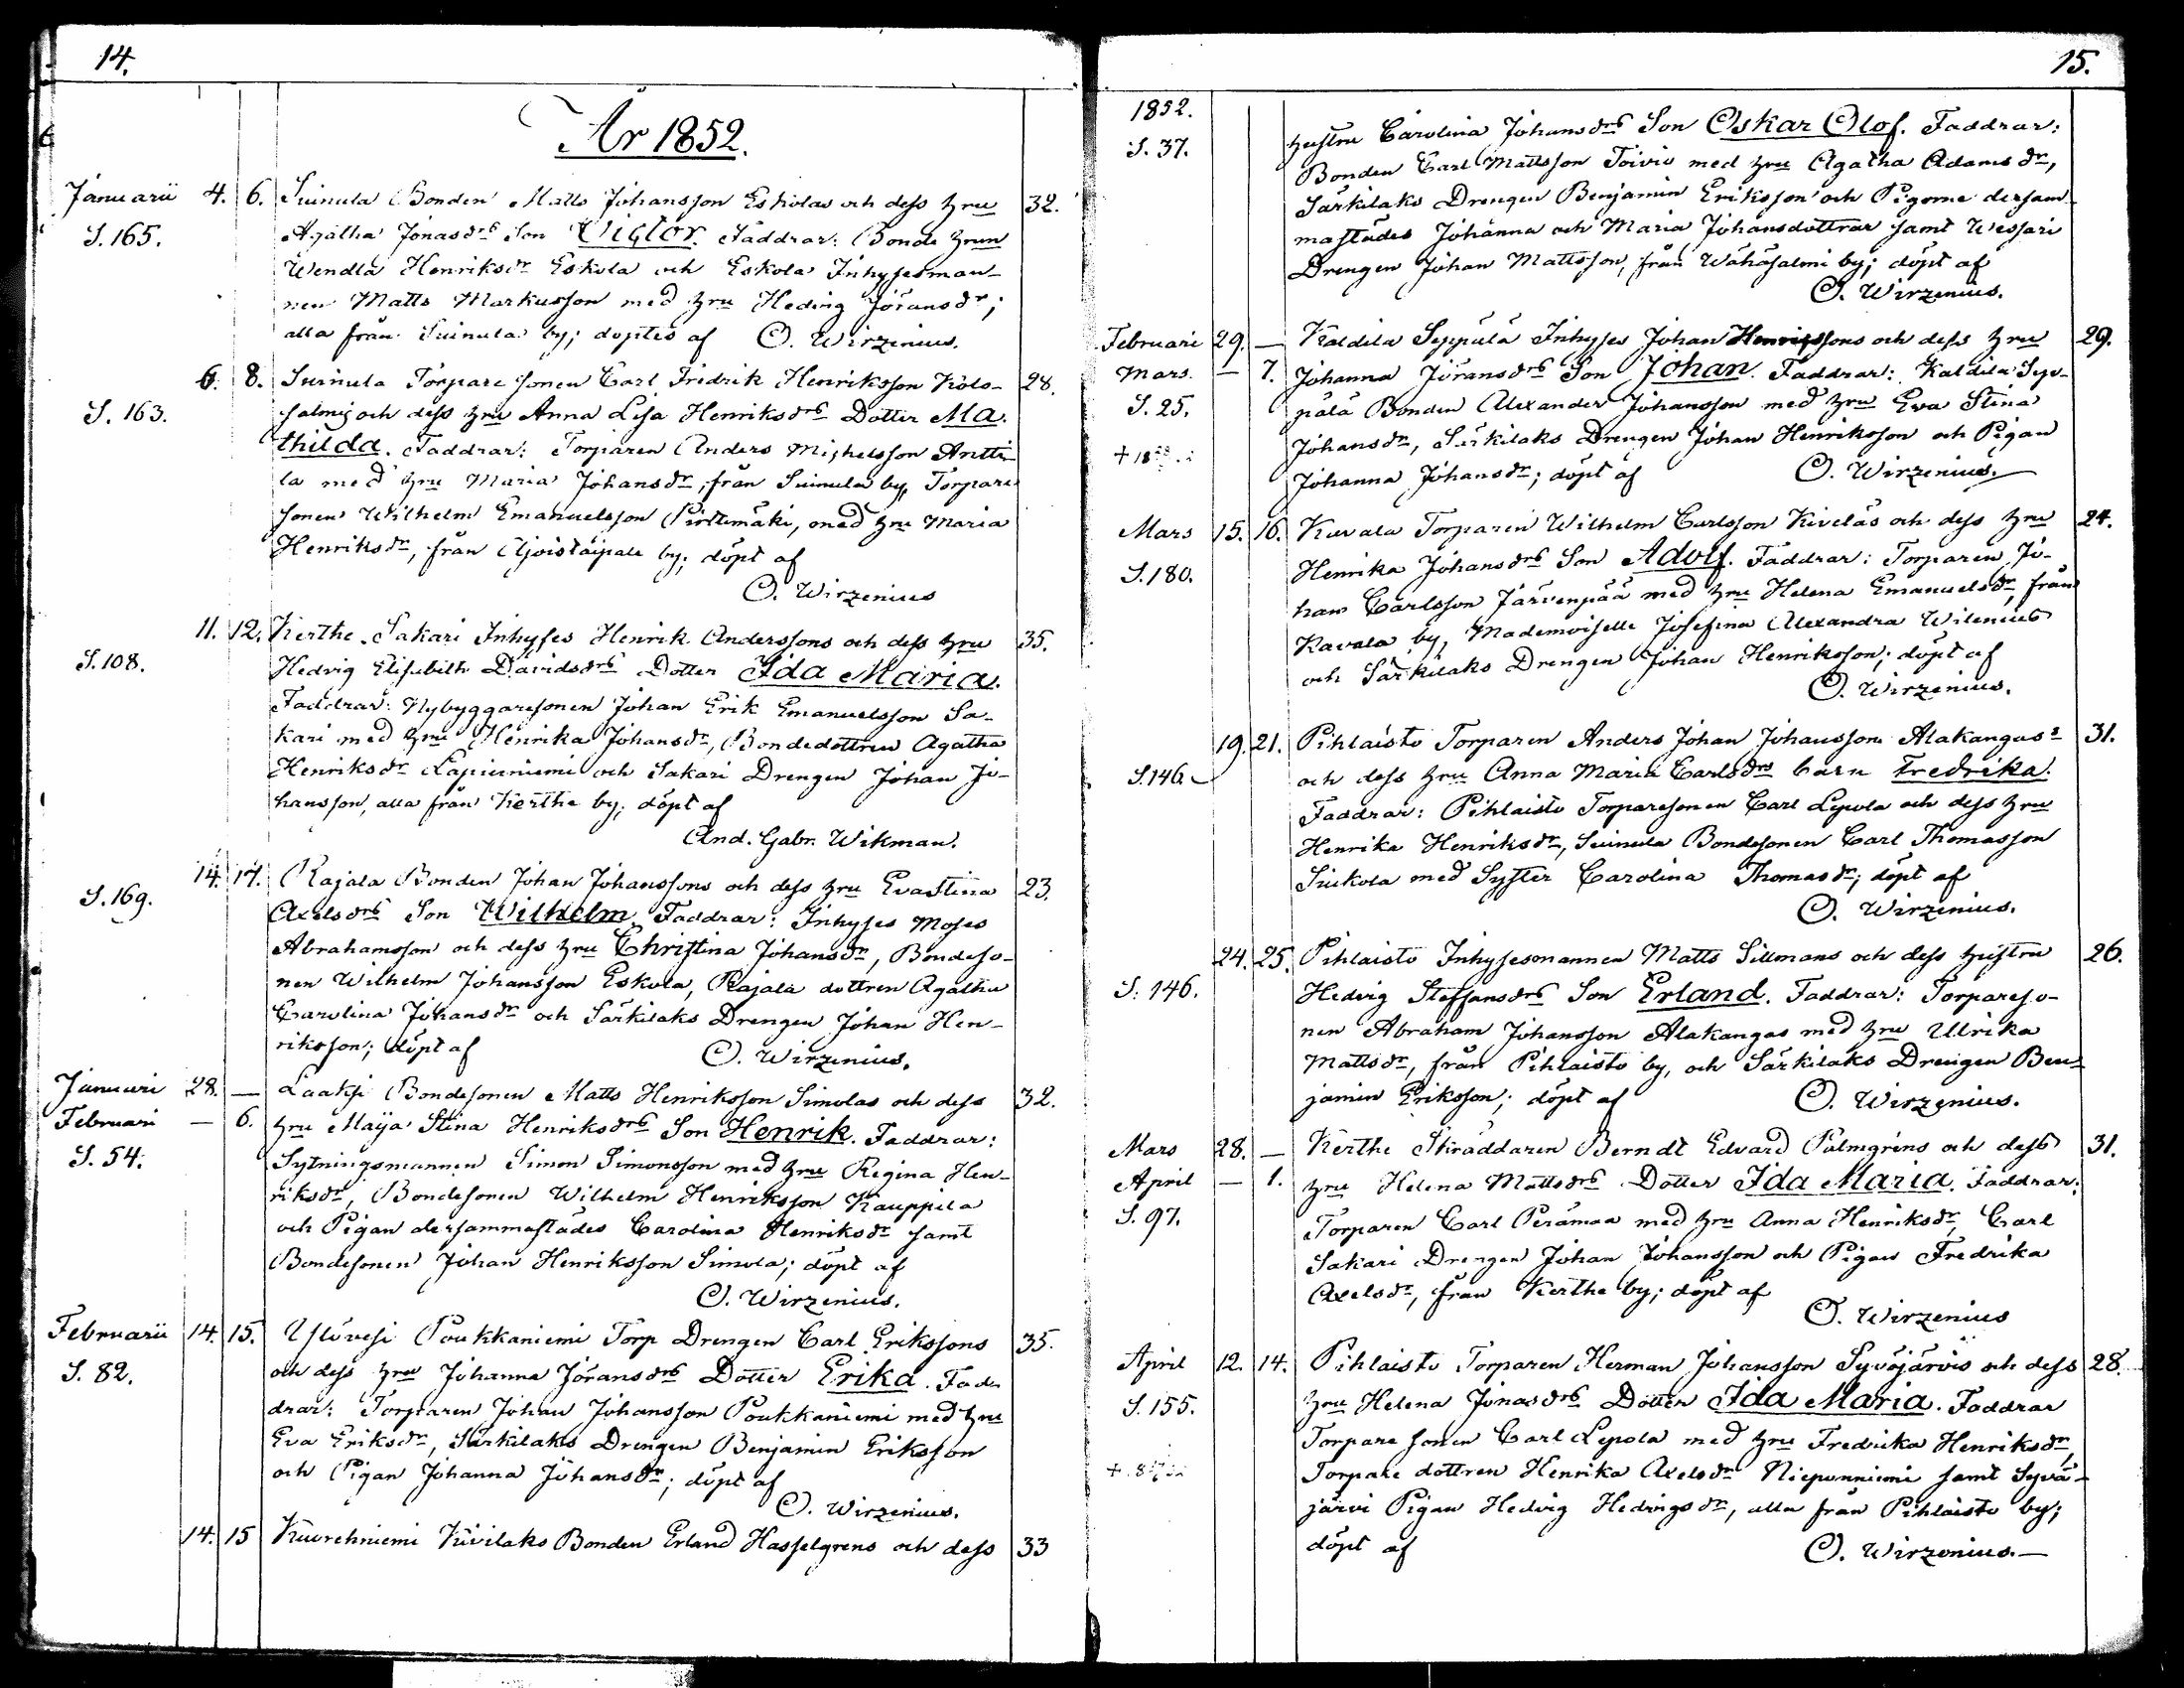 14.
År 1852.
Januarii 4. 6. Suinula Bonden Matts Johansson Eskolas och dess hru 32.
S. 165. Agatha Jonasdrs Son Victor. Faddrar: Bonde hrun
Wendla Henriksdr Eskola och Eskola Inhysesman-
nen Matts Markusson med hru Hedvig Jöransdr;
alla från Suinula by; döptes af O. Wirzenius.
6. 8. Suinula Torpare sonen Carl Fridrik Henriksson Kols- 28.
S. 163. salmis och dess hru Anna Lisa Henriksdrs Dotter Ma-
thilda. Faddrar: Torparen Anders Michelsson Antti-
la med hru Maria Johansdr, från Suinula by, Torpare
sonen Wilhelm Emanuelsson Pirttimäki, med hru Maria
Henriksdr, från Ajoistaipale by; döpt af
O. Wirzenius
11. 12. Kerthe Sakari Inhyses Henrik Anderssons och dess hru 35.
S. 108. Hedvig Elisabeth Davidsdrs Dotter Ida Maria.
Faddrar: Nybyggaresonen Johan Erik Emanuelsson Sa-
kari med hru Henrika Johansdr, Bondedottren Agatha
Henriksdr Lapinniemi och Sakari Drengen Johan Jo-
hansson, alla från Kerthe by; döpt af
And. Gabr. Wikman.
14. 17. Rajala Bonden Johan Johanssons och dess hru Eva Stina 23.
S. 169. Axelsdrs Son Wilhelm. Faddrar: Inhyses Moses
Abrahamsson och dess hru Christina Johansdr, Bondeso-
nen Wilhelm Johansson Eskola, Rajala dottren Agatha
Carolina Johansdr och Särkilaks Drengen Johan Hen-
riksson; döpt af O. Wirzenius.
Januari 28. — Laaksi Bondesonen Matts Henriksson Simolas och dess 32.
Februari — 6. hru Maija Stina Henriksdrs Son Henrik. Faddrar:
S. 54. Sytningsmannen Simon Simonsson med hru Regina Hen-
riksdr, Bondesonen Wilhelm Henriksson Kauppila
och Pigan dersammastädes Carolina Henriksdr samt
Bondesonen Johan Henriksson Simola; döpt af
O. Wirzenius.
Februarii 14. 15. Yslövesi Poukkaniemi Torp Drengen Carl Erikssons 35.
S. 82. och dess hru Johanna Jöransdrs Dotter Erika. Fad-
drar: Torparen Johan Johansson Poukkaniemi med hru
Eva Eriksdr, Särkilaks Drengen Benjamin Eriksson
och Pigan Johanna Johansdr; döpt af
O. Wirzenius.
14. 15 Kuivilaks Bonden Erland Hasselgrens och dess 33
15.
1852.
S. 37. hustru Carolina Johansdrs Son Oskar Olof. Faddrar:
Bonden Carl Mattsson Toivio med hru Agatha Adamsdr,
Särkilaks Drengen Benjamin Eriksson och Pigorne dersam-
mastädes Johanna och Maria Johansdottrar samt Wessari
Drengen Johan Mattsson, från Wähäsalmi by; döpt af
O. Wirzenius.
Februari 29. — Kaldila Seppälä Inhyses Johan Henrikssons och dess hru 29.
Mars. — 7. Johanna Jöransdrs Son Johan. Faddrar: Kaldila Sep-
S. 25. pälä Bonden Alexander Johansson med hru Eva Stina
Johansdr, Särkilaks Drengen Johan Henriksson och Pigan
Johanna Johansdr; döpt af O. Wirzenius.
Mars 15. 16. Kavala Torparen Wilhelm Carlsson Kiveläs och dess hru 24.
S. 180. Henrika Johansdrs Son Adolf. Faddrar: Torparen Jo-
han Carlsson Järvenpää med hru Helena Emanuelsdr, från
Kavala by, Mademoiselle Josefina Alexandra Wilenius
och Särkilaks Drengen Johan Henriksson; döpt af
O. Wirzenius.
19. 21. Pihlaisto Torparen Anders Johan Johansson Alakangas's 31.
S. 146. och dess hru Anna Maria Carlsdrs barn Fredrika.
Faddrar: Pihlaisto Torparesonen Carl Lepola och dess hru
Henrika Henriksdr, Suinula Bondesonen Carl Thomasson
Siukola med Syster Carolina Thomasdr; döpt af
O. Wirzenius.
24. 25. Pihlaisto Inhysesmannen Matts Sillmans och dess hustru 26.
S. 146. Hedvig Steffansdrs Son Erland. Faddrar: Torpareso-
nen Abraham Johansson Alakangas med hru Ulrika
Mattsdr, från Pihlaisto by, och Särkilaks Drengen Ben-
jamin Eriksson; döpt af O. Wirzenius.
Mars 28. — Kerthe Skräddaren Berndt Edvard Palmgréns och dess 31.
April — 1. hru Helena Mattsdrs Dotter Ida Maria. Faddrar:
S. 97. Torparen Carl Perämaa med hru Anna Henriksdr, Carl
Sakari Drengen Johan Johansson och Pigan Fredrika
Axelsdr, från Kerthe by; döpt af
O. Wirzenius
April 12. 14. Pihlaisto Torparen Herman Johansson Syväjärvis och dess 28.
S. 155. hru Helena Jonasdrs Dotter Ida Maria. Faddrar
Torpare sonen Carl Lepola med hru Fredrika Henriksdr,
Torpare dottren Henrika Axelsdr Nieponniemi samt Syvä-
järvi Pigan Hedvig Hedvigsdr, alla från Pihlaisto by;
döpt af O. Wirzenius.—